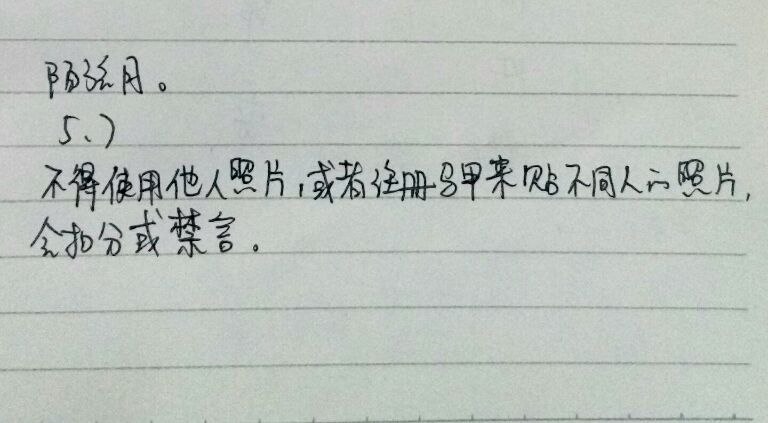 陌弦月。
5、)
不得使用他人照片,或者注册马甲来贴不同人的照片,
会扣分或禁言。